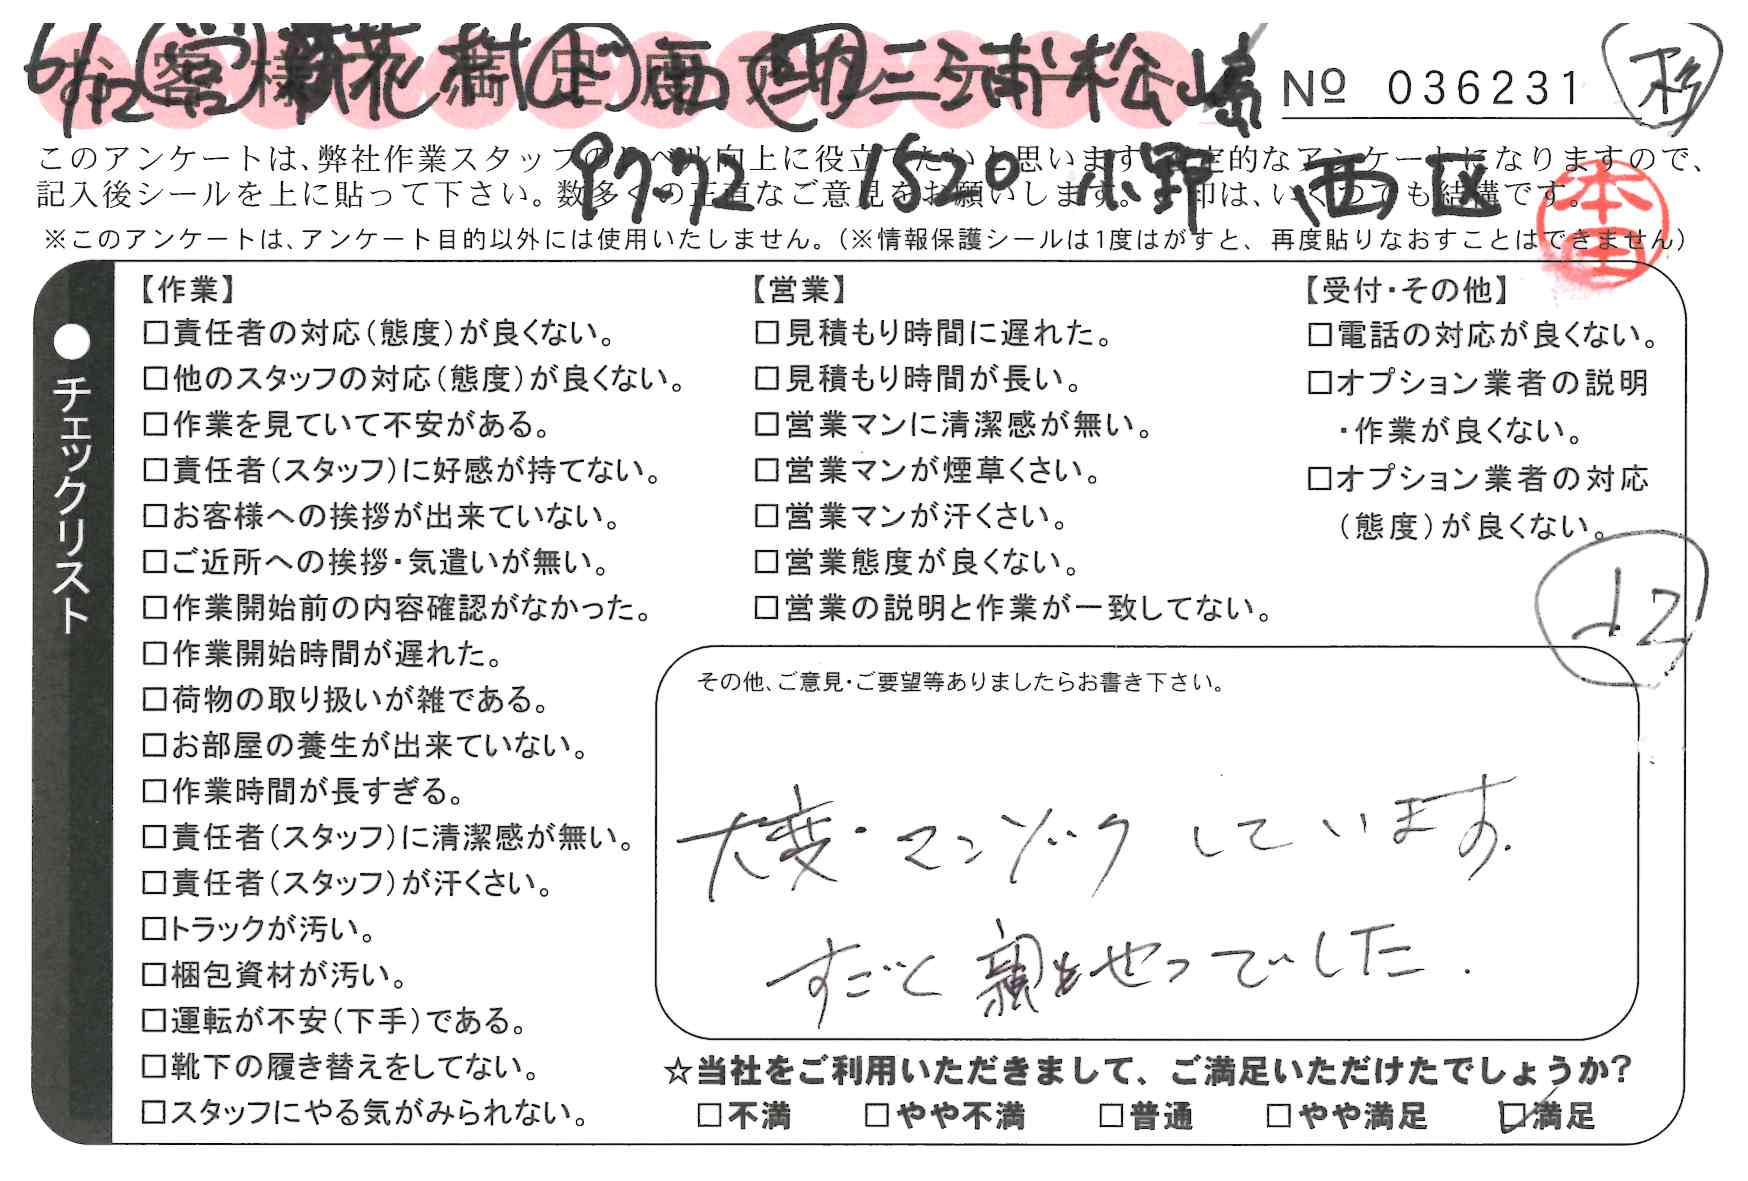 6/12 営 花村 ド 西 助 三浦 松崎
お客様満足度アンケート
№ 036231
杉
このアンケートは、弊社作業スタッフのレベル向上に役立てたいと思います。定的なアンケートになりますので、
9772 1520 小野 西区
記入後シールを上に貼って下さい。数多くの正直なご意見をお願いします。 印は、いくつでも結構です。
本田
※このアンケートは、アンケート目的以外には使用いたしません。(※情報保護シールは1度はがすと、再度貼りなおすことはできません)
●チェックリスト
【作業】
□責任者の対応(態度)が良くない。
□他のスタッフの対応(態度)が良くない。
□作業を見ていて不安がある。
□責任者(スタッフ)に好感が持てない。
□お客様への挨拶が出来ていない。
□ご近所への挨拶・気遣いが無い。
□作業開始前の内容確認がなかった。
□作業開始時間が遅れた。
□荷物の取り扱いが雑である。
□お部屋の養生が出来ていない。
□作業時間が長すぎる。
□責任者(スタッフ)に清潔感が無い。
□責任者(スタッフ)が汗くさい。
□トラックが汚い。
□梱包資材が汚い。
□運転が不安(下手)である。
□靴下の履き替えをしてない。
□スタッフにやる気がみられない。
【営業】
□見積もり時間に遅れた。
□見積もり時間が長い。
□営業マンに清潔感が無い。
□営業マンが煙草くさい。
□営業マンが汗くさい。
□営業態度が良くない。
□営業の説明と作業が一致してない。
【受付・その他】
□電話の対応が良くない。
□オプション業者の説明
・作業が良くない。
□オプション業者の対応
(態度)が良くない。
その他、ご意見・ご要望等ありましたらお書き下さい。
大変・マンゾクしています.
すごく親せつでした.
☆当社をご利用いただきまして、ご満足いただけたでしょうか?
□不満 □やや不満 □普通 □やや満足 □満足